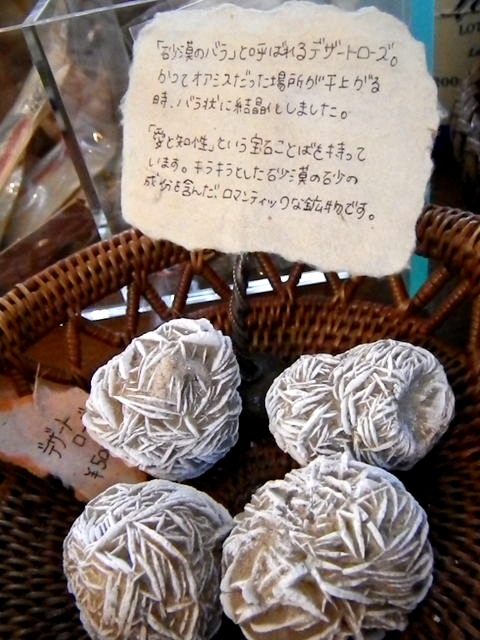 「砂漠のバラ」と呼ばれるデザートローズ。
かつてオアシスだった場所が干上がる
時、バラ状に結晶化しました。
「愛と知性」という宝石ことばを持って
います。キラキラとした砂漠の砂の
成分を含んだ、ロマンティックな鉱物です。
デザート
ロー
¥50